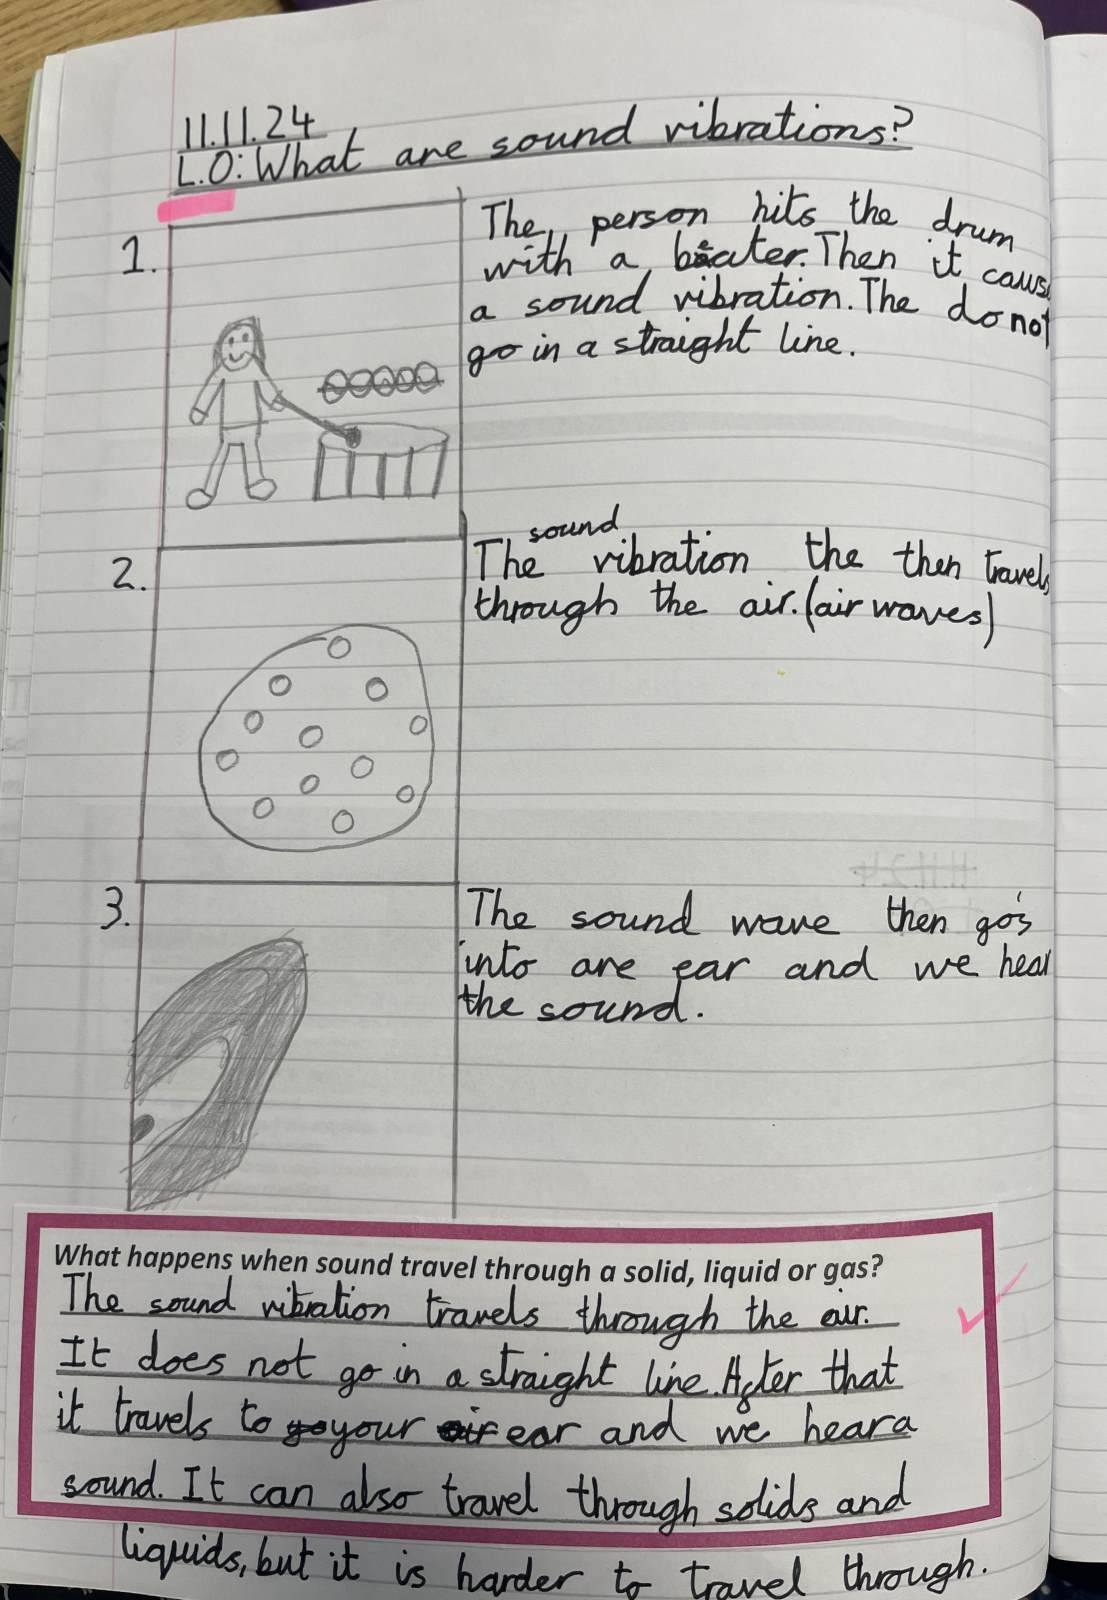 11.11.24
L.O: What are sound vibrations?
1.
The person hits the drum
with a beater. Then it caus
a sound vibration. The do not
go in a straight line.
2.
sound
The vibration the then travels
through the air. (air waves)
3.
The sound wave then go's
into are ear and we hear
the sound.
What happens when sound travel through a solid, liquid or gas?
The sound vibration travels through the air.
It does not go in a straight line. After that
it travels to your ear and we hear a
sound. It can also travel through solids and
liquids, but it is harder to travel through.